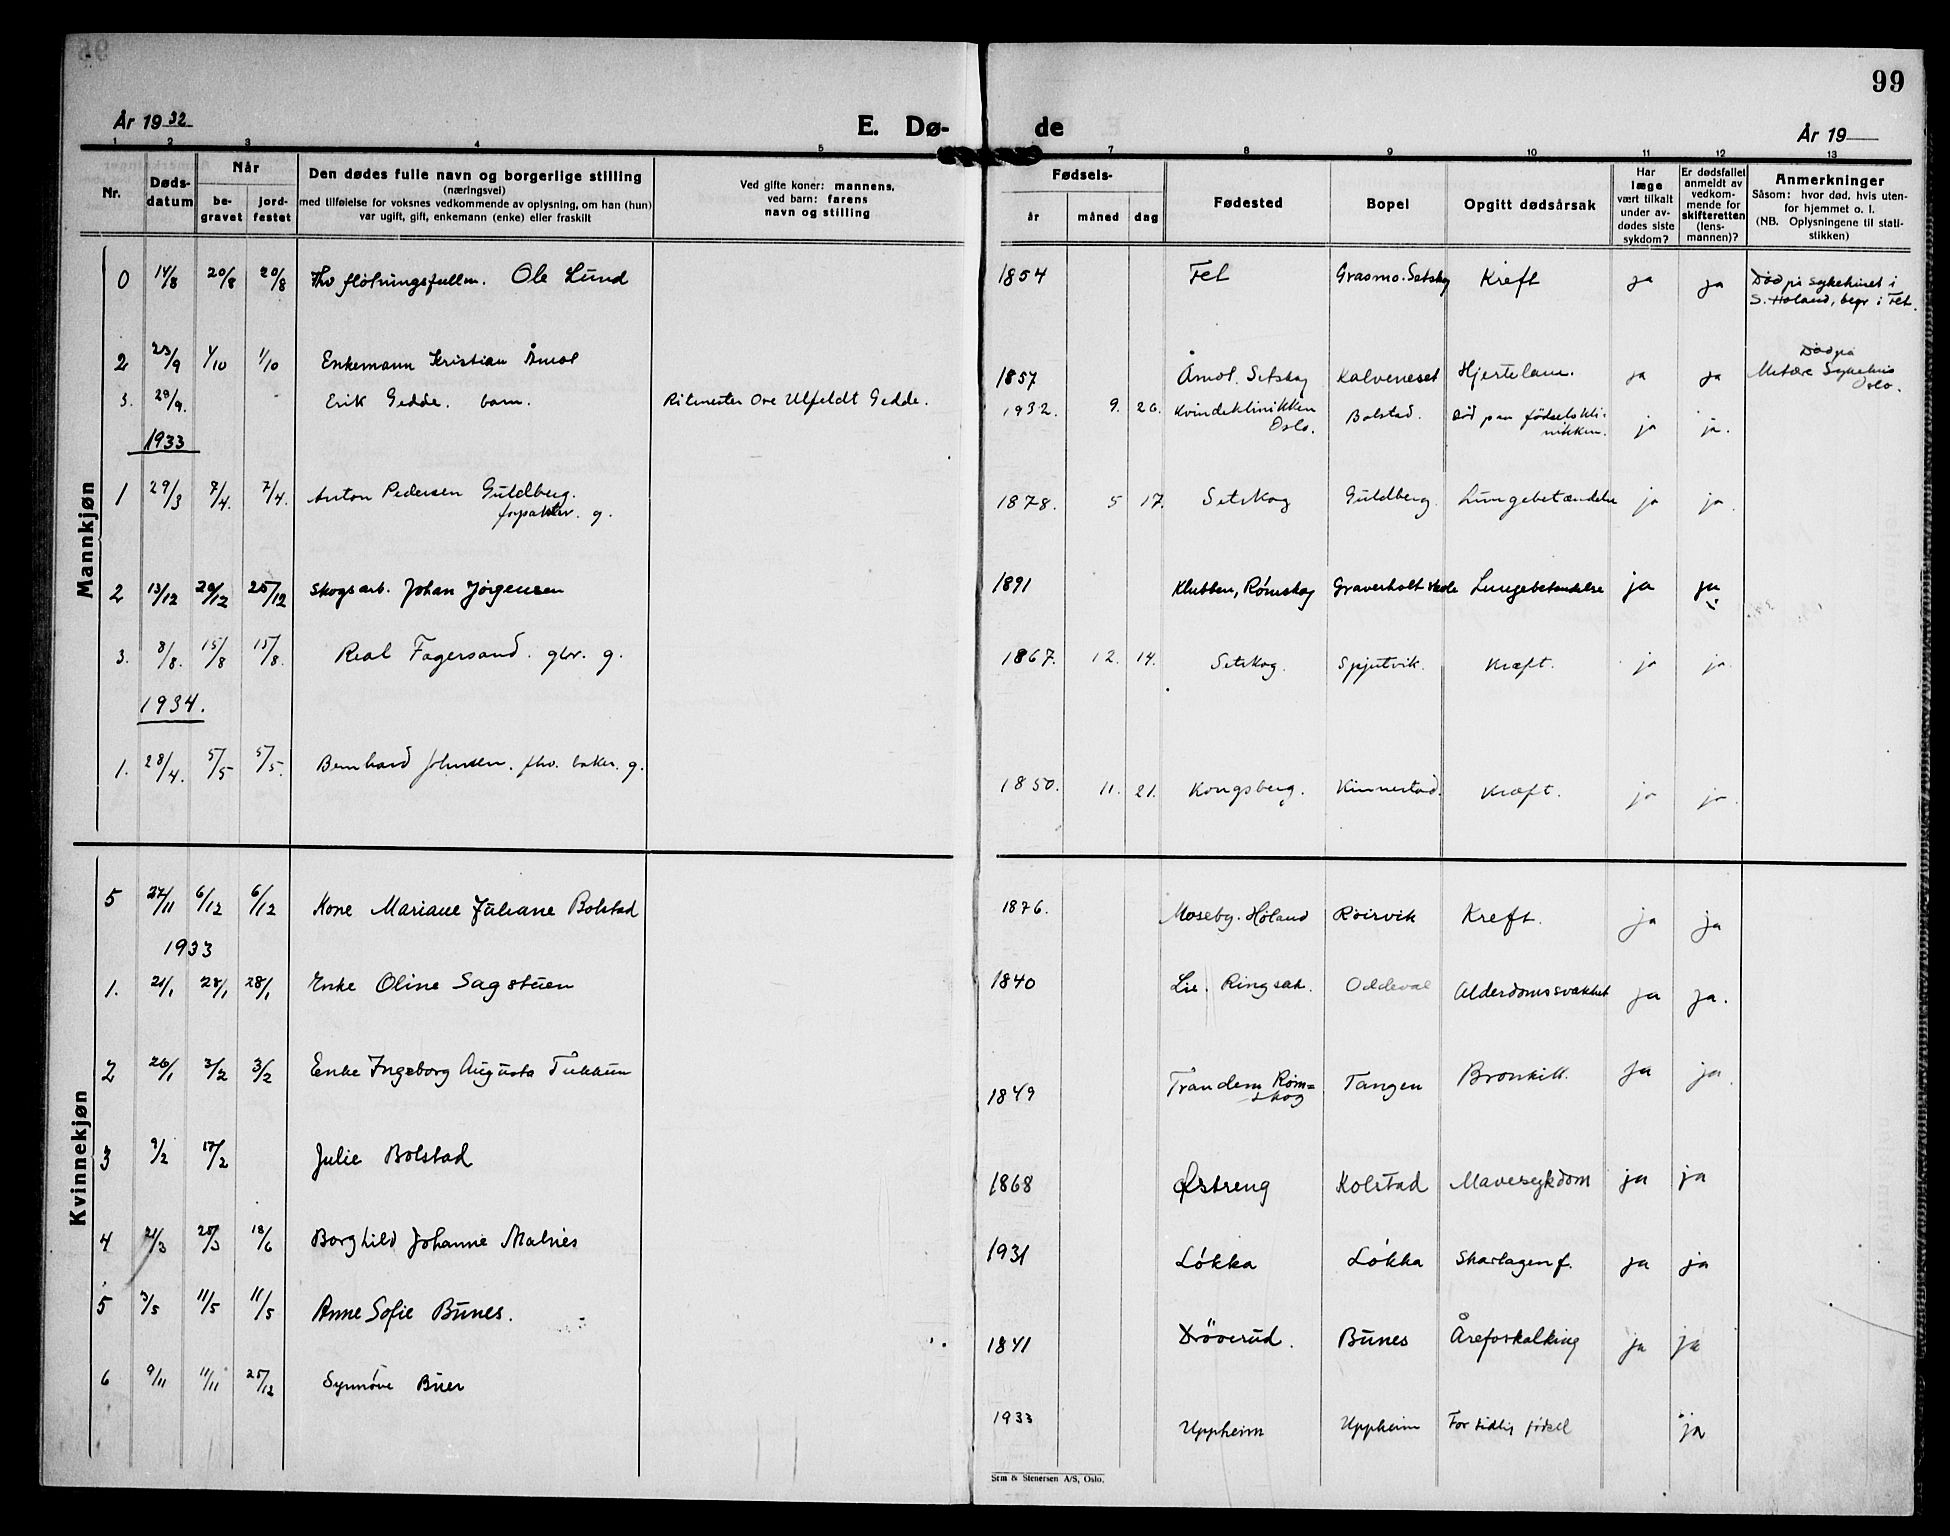 99
År 1932
E. Dø-
de
År 19
1 2 3 4 5 7 8 9 10 11 12 13
Nr.
Døds-
datum
Når
be-
gravet
jord-
festet
Den dødes fulle navn og borgerlige stilling
(næringsvei)
med tilføielse for voksnes vedkommende av oplysning, om han (hun)
var ugift, gift, enkemann (enke) eller fraskilt
Ved gifte koner: mannens,
ved barn: farens
navn og stilling
Fødsels-
år
måned
dag
Fødested
Bopel
Opgitt dødsårsak
Har
læge
vært tilkalt
under av-
dødes siste
sykdom?
Er dødsfallet
anmeldt av
vedkom-
mende for
skifteretten
(lens-
mannen)?
Anmerkninger
Såsom: hvor død, hvis uten-
for hjemmet o. l.
(NB. Oplysningene til stati-
stikken)
Mannkjøn
0 14/8 20/8 20/8 Fhv fløtningsfullm. Ole Lund 1854 Fet Grasmo. Setskog Kreft ja ja Død på sykehuset i
S. Høland, begr i Fet.
2 23/9 1/10 1/10 Enkemann Kristian Åmol 1857 Åmol. Setskog Kalveneset Hjertelam. ja ja Død på
Sykehus
Oslo.
3. 29/9. Erik Gedde. barn. Ritmester Ove Ulfeldt Gedde. 1932. 9. 26. Kvindeklinikken
Oslo. Bolstad. død paa fødselskli-
nikken. ja ja.
1933
1 29/3 7/4. 7/4. Anton Pedersen Guldberg.
forpakter. g. 1878. 5 17. Setskog Guldberg. Lungebetændelse ja ja.
2 13/12 20/12 25/12 Skogsarb. Johan Jørgensen 1891 Klubben, Rømskog Graverholt Lungebetendelse ja ja
3. 8/8. 15/8 15/8. Real Fagersand. gbr. g. 1867. 12. 14. Setskog. Spjutvik. Kræft. ja ja.
1934.
1. 28/4. 5/5 5/5. Bernhard Johnsen. fhv. baker. g. 1850. 11. 21. Kongsberg. Kinnestad. Kræft. ja ja.
Kvinnekjøn
5 27/11 6/12 6/12 Kone Mariane Juliane Bolstad 1876. Moseby. Høland Røirvik Kreft. ja ja
1933
1. 21/1 28/1 28/1 Enke Oline Sagstuen 1840 Lie. Ringsak. Oddeval Alderdomssvakhet ja ja.
2 26/1 3/2 3/2 Enke Ingeborg Augusta Tukkun 1849 Trandem Røm=
skog Tangen Bronkitt. ja ja.
3 9/2 17/2 Julie Bolstad 1868 Østreng Kolstad Mavesykdom ja ja
4 21/3 28/3 18/6 Borghild Johanne Malnes 1931 Løkka Løkka Skarlagenf. ja ja
5 3/5 11/5 11/5 Anne Sofie Bunes. 1841 Drøverud. Bunes Åreforkalking ja ja
6 9/11 11/11 25/12 Synnøve Buer 1933 Uppheim Uppheim For tidlig fødsel ja
Sem & Stenersen A/S, Oslo.